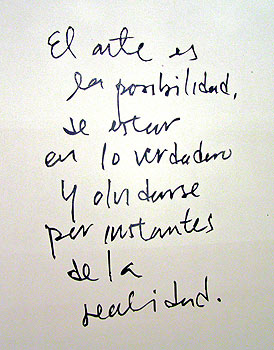 El arte es
la posibilidad,
de estar
en lo verdadero
y olvidarse
por instantes
de la
realidad.